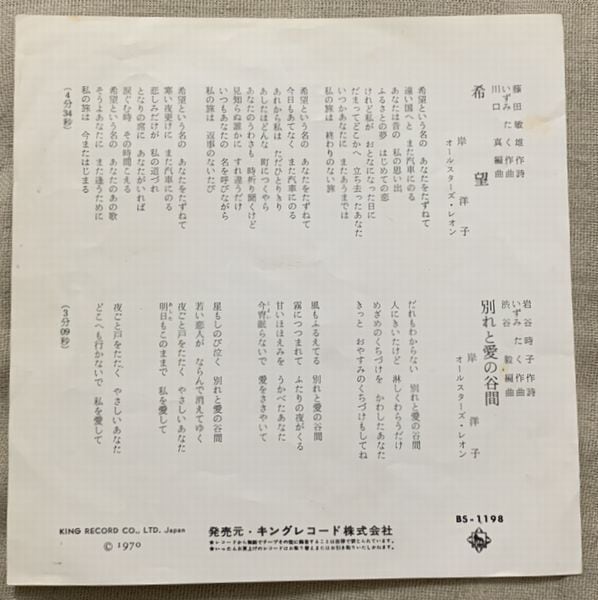 藤田敏雄作詩
いずみたく作曲
川口真編曲
希望
岸洋子
オールスターズ・レオン
希望という名の あなたをたずねて
遠い国へと また汽車にのる
あなたは昔の 私の思い出
ふるさとの夢 はじめての恋
けれど私が おとなになった日に
だまってどこかへ 立ち去ったあなた
いつかあなたに またあうまでは
私の旅は 終わりのない旅
希望という名の あなたをたずねて
今日もあてなく また汽車にのる
あれから私は ただひとりきり
あしたはどんな 町につくやら
あなたのうわさも 時折り聞くけど
見知らぬ誰かに すれ違うだけ
いつもあなたの 名を呼びながら
私の旅は 返事のないたび
希望という名の あなたをたずねて
寒い夜更けに また汽車にのる
悲しみだけが 私の道づれ
となりの席に あなたがいれば
涙ぐむ時 その時聞こえる
希望という名の あなたのあの歌
そうよあなたに また逢うために
私の旅は 今またはじまる
(4分34秒)
岩谷時子作詩
いずみたく作曲
渋谷毅編曲
別れと愛の谷間
岸洋子
オールスターズ・レオン
だれもわからない 別れと愛の谷間
人にきいたけど 淋しくわらうだけ
めざめのくちづけを かわしたあなた
きっと おやすみのくちづけもしてね
風もふるえてる 別れと愛の谷間
霧につつまれて ふたりの夜がくる
甘いほほえみを うかべたあなた
今宵眠らないで 愛をささやいて
星もしのび泣く 別れと愛の谷間
若い恋人が ならんで消えてゆく
夜ごと戸をたたく やさしいあなた
明日もこのままで 私を愛して
夜ごと戸をたたく やさしいあなた
どこへも行かないで 私を愛して
(3分09秒)
BS-1198
KING RECORD CO., LTD. Japan
© 1970
発売元・キングレコード株式会社
★レコードから無断でテープその他に録音することは法律で禁じられています。
★いったんお買上げのレコードはお取り替えまたはお引き取りいたしかねます。